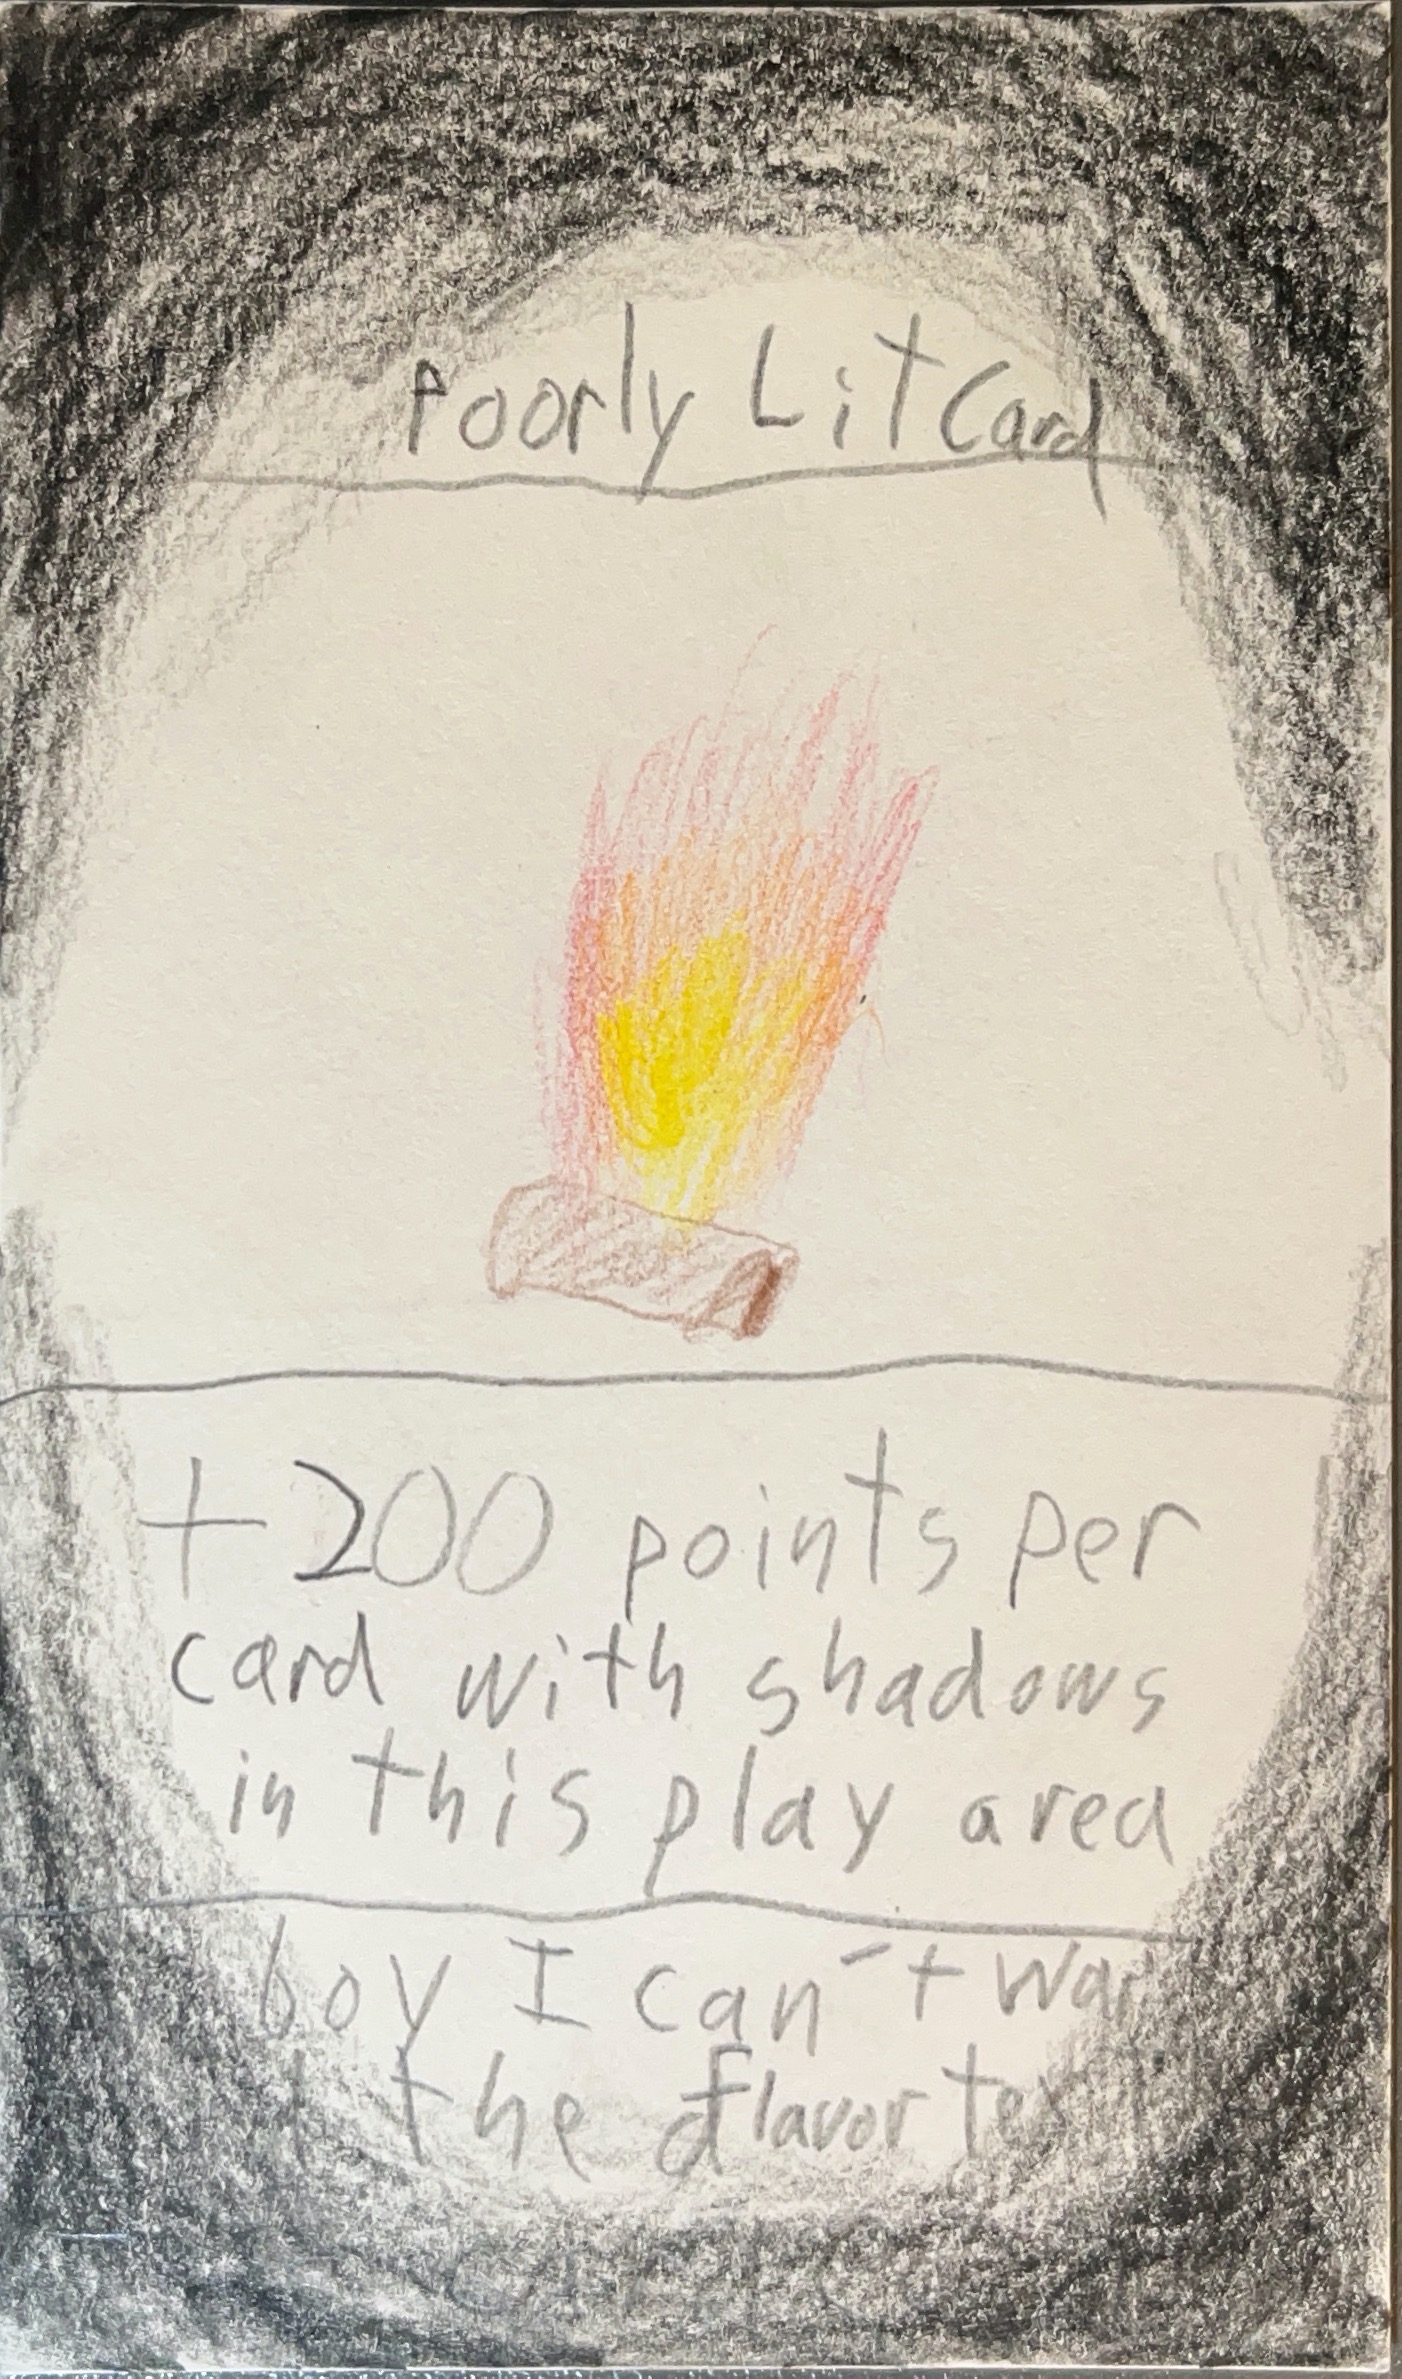 Poorly Lit Card
+200 points per
card with shadows
in this play area
boy I can't
the flavor